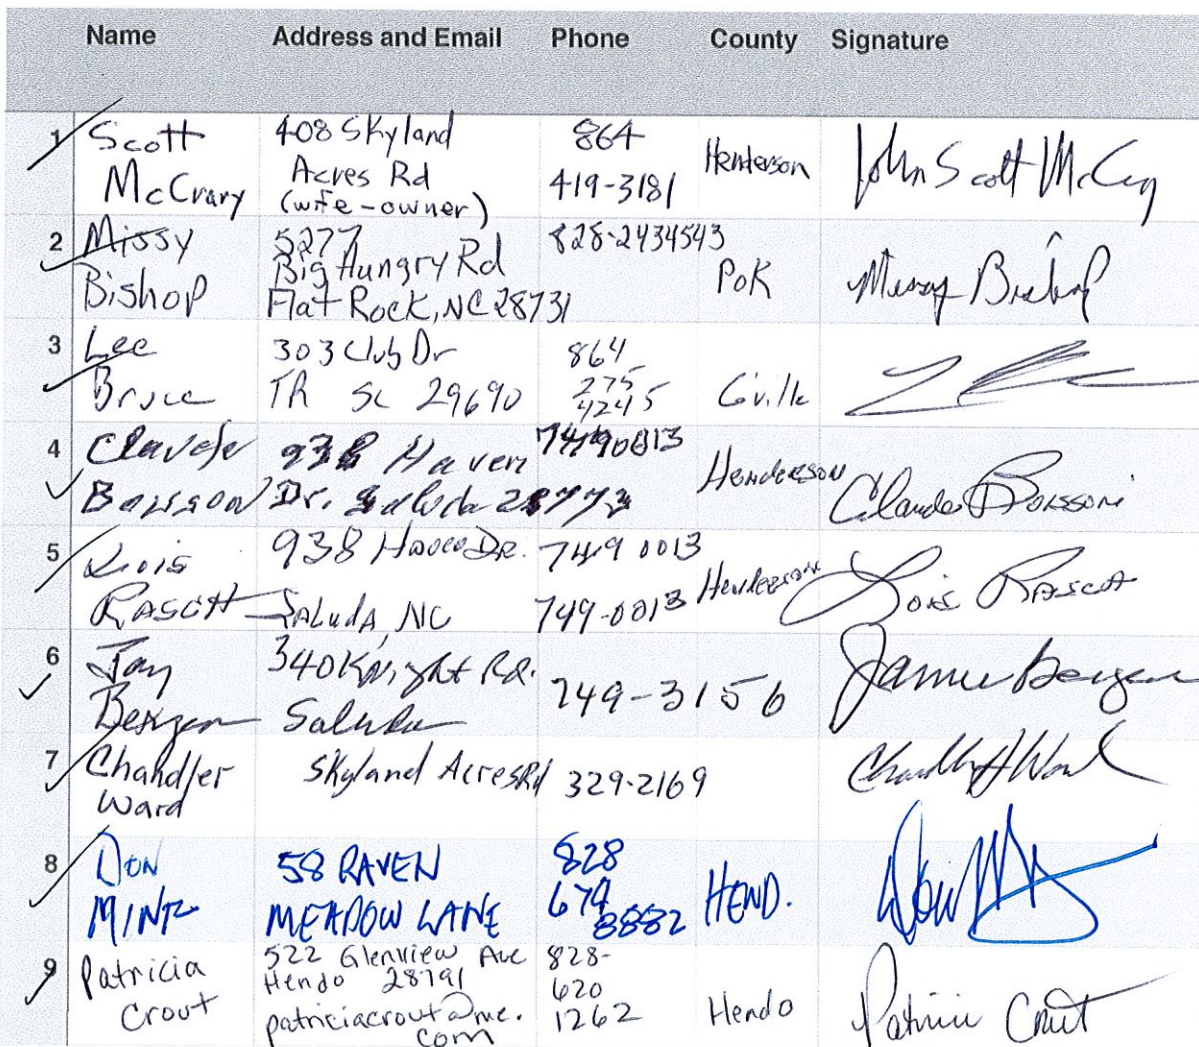 Name Address and Email Phone County Signature
1 Scott McCrary 408 Skyland Acres Rd (wife-owner) 864 419-3181 Henderson John Scott McCrary
2 Missy Bishop 5277 Big Hungry Rd Flat Rock, NC 28731 828-2434543 Polk Missy Bishop
3 Lee Bruce 303 Club Dr TR SC 29690 864 275 4245 G'ville
4 Claude Boisson 938 Haven Dr. Saluda 28773 7490013 Henderson Claude Boisson
5 Lois Rascot 938 Haven Dr. Saluda, NC 749 0013 749-0013 Henderson Lois Rascot
6 Jay Bergen 340 Knight Rd. Saluda 749-3156 James Bergen
7 Chandler Ward Skyland Acres Rd 329-2169
8 Don Mintz 58 RAVEN MEADOW LANE 828 674 8882 HEND. Don
9 Patricia Crout 522 Glenview Ave Hendo 28791 patriciacrout@me.com 828-620 1262 Hendo Patricia Crout